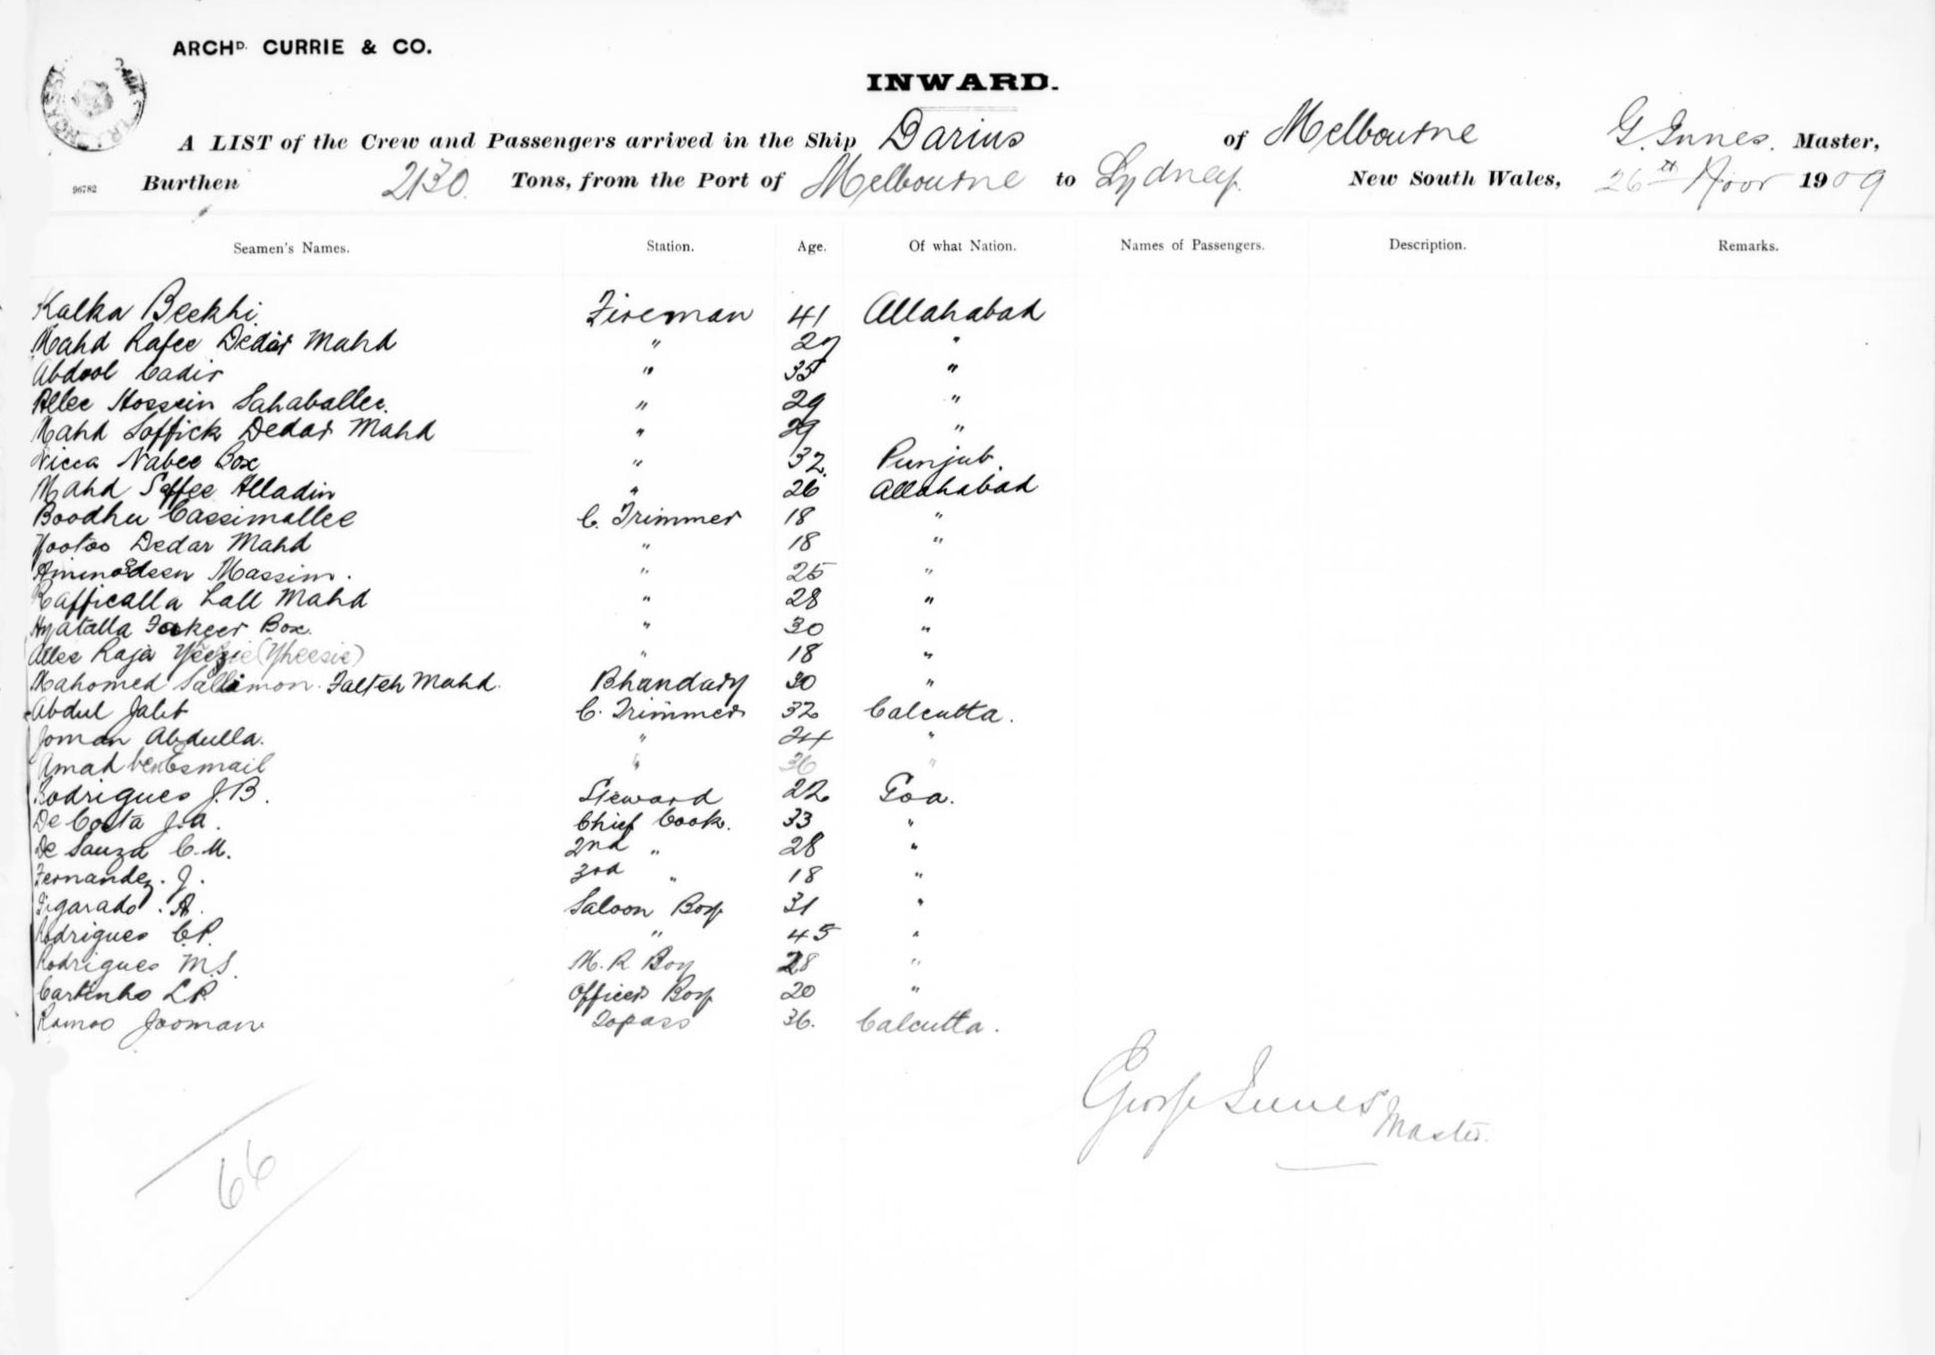 ARCHD. CURRIE & CO.
INWARD.
A LIST of the Crew and Passengers arrived in the Ship Darius of Melbourne G. Innes. Master,
96782 Burthen 2130 Tons, from the Port of Melbourne to Sydney New South Wales, 26th Novr 1909
Seamen's Names. Station. Age. Of what Nation. Names of Passengers. Description. Remarks.
Kalka Beekhi Fireman 41 Allahabad
Mahd Rafee Dedar Mahd " 27 "
Abdool Cadir " 35 "
Allee Hossein Sahaballee. " 29 "
Mahd Soffick Dedar Mahd " 29 "
Nicca Nabee Box " 32. Punjub.
Mahd Saffee Alladin " 26 Allahabad
Boodhu Cassimallee C. Trimmer 18 "
Dedar Mahd " 18 "
Aminodeen Massim. " 25 "
Rafficalla Lall Mahd " 28 "
Hyatalla Fakeer Box. " 30 "
Allee Raja Yeezie (Yheesie) " 18 "
Mahomed Salimon. Falteh Mahd. Bhandary 30 "
Abdul Jalit C. Trimmer 32 Calcutta.
Joman Abdulla. " 24 "
Amad ben Esmail " 36 "
Rodrigues J.B. Steward 22 Goa.
De Costa J.A. Chief Cook. 33 "
De Sauza C.M. 2nd " 28 "
Fernandez. J. 3rd " 18 "
Figarado. A. Saloon Boy 31 "
Rodrigues C.P. " 45 "
Rodrigues M.S. M. R Boy 28 "
Cartinho L.P. Officers Boy 20 "
Ramoo Jooman Topass 36. Calcutta.
George Innes Master.
66